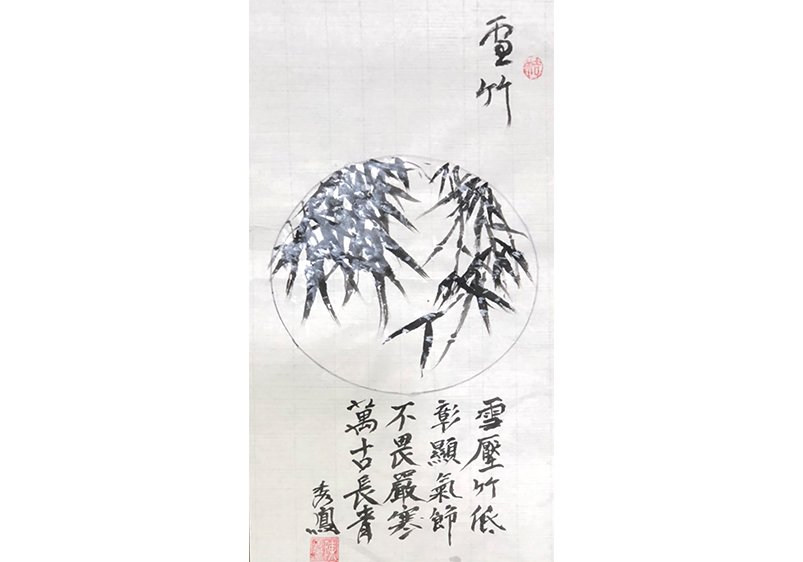 雪竹
雪壓竹低
彰顯氣節
不畏嚴寒
萬古長青
秀鳳